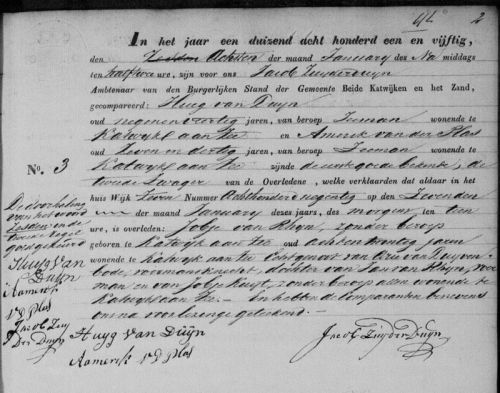 2
In het jaar een duizend acht honderd een en vijftig,
den Achtsten der maand January des Na middags
ten halftwee ure, zijn voor ons Jacob Zuyderduyn
Ambtenaar van den Burgerlijken Stand der Gemeente Beide Katwijken en het Zand,
gecompareerd: Huig van Duyn
oud negenenveertig jaren, van beroep Zeeman wonende te
Katwijk aan Zee en Amerik van der Plas
oud Zeven en dertig jaren, van beroep Zeeman wonende te
Katwijk aan Zee zijnde de eerste goede bekende, de
tweede Zwager van de Overledene, welke verklaarden dat aldaar in het
huis Wijk Zeven Nummer Achthonderd negentig op den Zevenden
der maand January dezes jaars, des morgens ten tien
ure, is overleden: Jobje van Rhyn, zonder beroep
geboren te Katwijk aan Zee oud acht en twintig jaren
wonende te Katwijk aan Zee Echtgenoot van
bode, voermansknecht, dochter van Jan van Rhyn, voer
man en van Jobje Kuyt, zonder beroep allen wonende te
Katwijk aan Zee. En hebben de Comparanten benevens
ons na voorlezing geteekend.
No. 3
De doorhaling
van het woord
Zesden en de
goedgekeurd
Huyg Van
Duÿn
Aamerik
v d Plas
Jacob Zuy
Der Duyn
Huyg Van Duÿn
Aamerik v d Plas
Jacob Zuyder Duyn